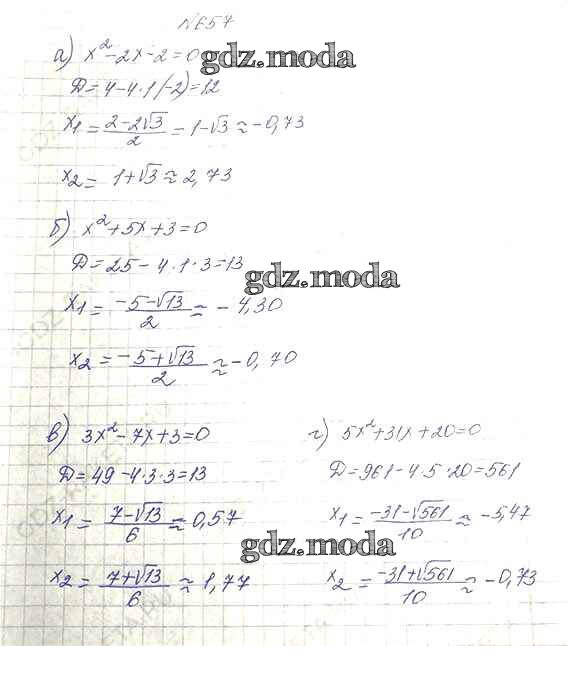 №657
а) x² - 2x - 2 = 0
gdz.moda
Д = 4 - 4·1(-2) = 12
x₁ = (2 - 2√3)/2 = 1 - √3 ≈ -0,73
x₂ = 1 + √3 ≈ 2,73
б) x² + 5x + 3 = 0
Д = 25 - 4·1·3 = 13
gdz.moda
x₁ = (-5 - √13)/2 ≈ -4,30
x₂ = (-5 + √13)/2 ≈ -0,70
в) 3x² - 7x + 3 = 0
Д = 49 - 4·3·3 = 13
x₁ = (7 - √13)/6 ≈ 0,57
x₂ = (7 + √13)/6 ≈ 1,77
г) 5x² + 31x + 20 = 0
Д = 961 - 4·5·20 = 561
x₁ = (-31 - √561)/10 ≈ -5,47
gdz.moda
x₂ = (-31 + √561)/10 ≈ -0,73